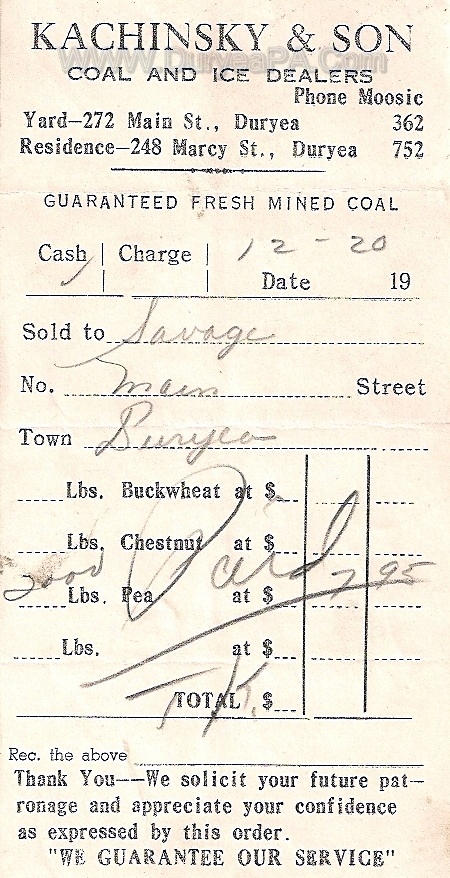 KACHINSKY & SON
www.DuryeaPA.Com
COAL AND ICE DEALERS
Phone Moosic
Yard—272 Main St., Duryea 362
Residence—248 Marcy St., Duryea 752
GUARANTEED FRESH MINED COAL
Cash Charge 12-20
Date 19
Sold to Savage
No. Main Street
Town Duryea
Lbs. Buckwheat at $
Lbs. Chestnut at $
2000 Lbs. Pea at $ 7 95
Paid
Lbs. at $
TOTAL $
T.K.
Rec. the above
Thank You——We solicit your future pat—
ronage and appreciate your confidence
as expressed by this order.
"WE GUARANTEE OUR SERVICE"